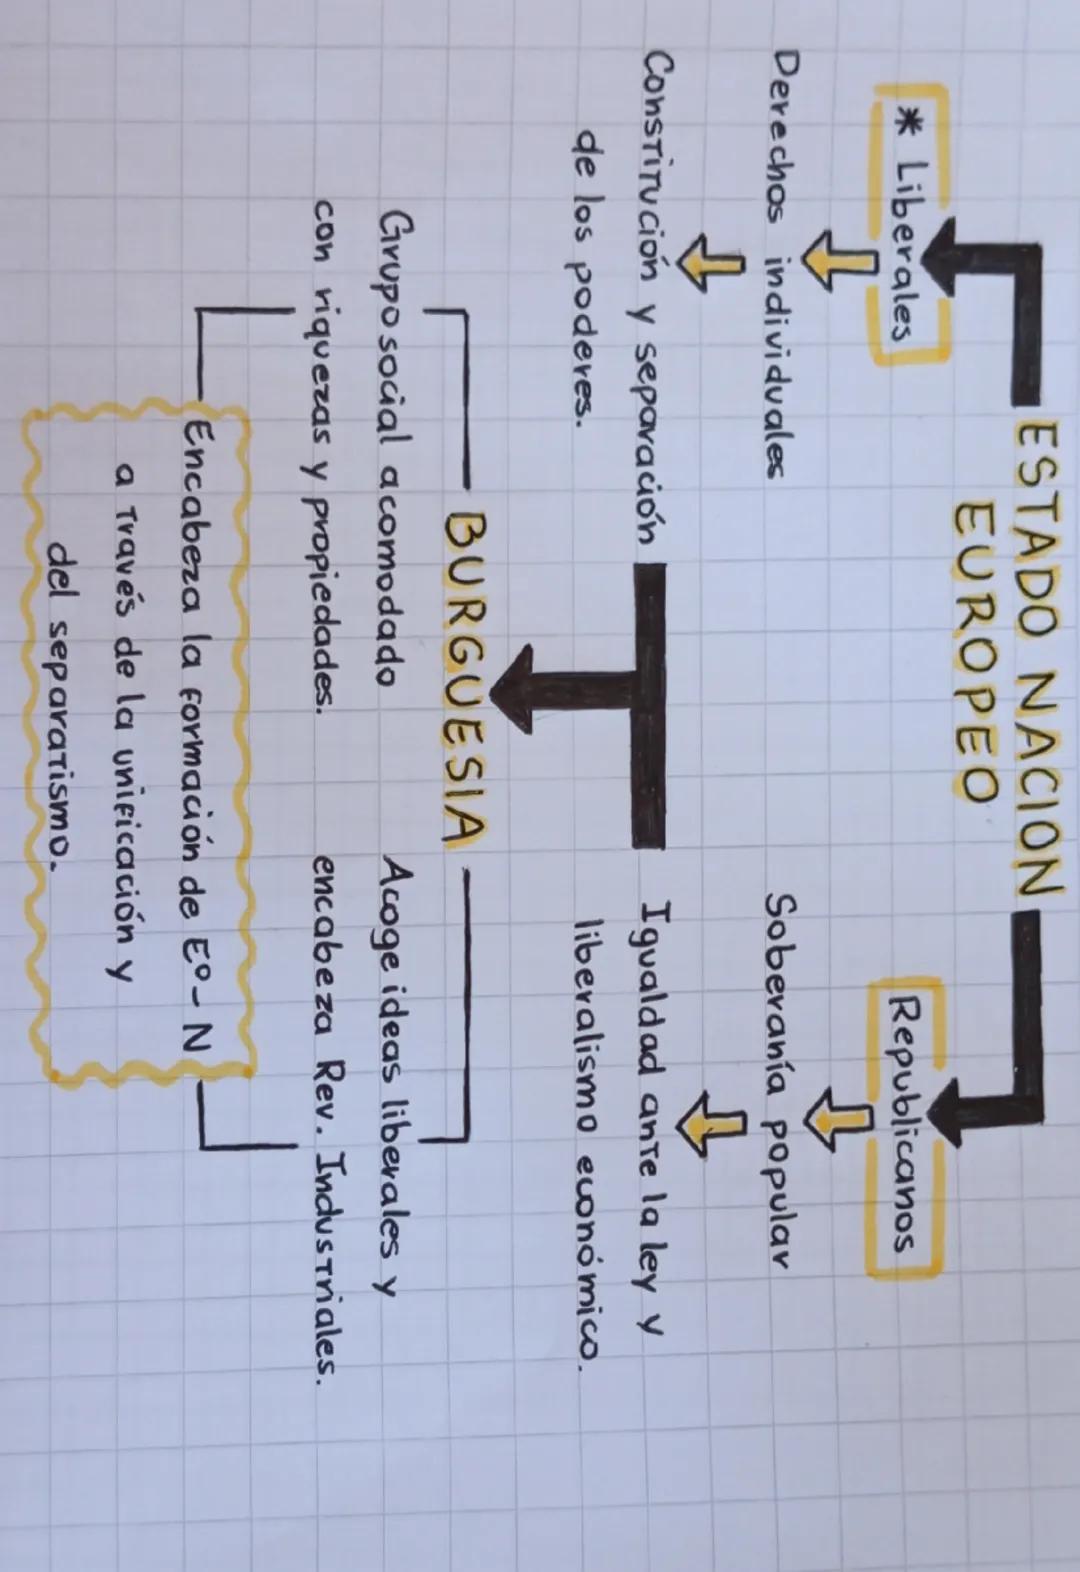 ESTADO NACION
EUROPEO
* Liberales
Derechos individuales
Constitución y separación
de los poderes.
Republicanos
Soberanía popular
Igualdad ante la ley y
liberalismo económico.
BURGUESIA
Grupo social acomodado
con riquezas y propiedades.
Acoge ideas liberales y
encabeza Rev. Industriales.
Encabeza la formación de Eº-N
a través de la unificación y
del separatismo.